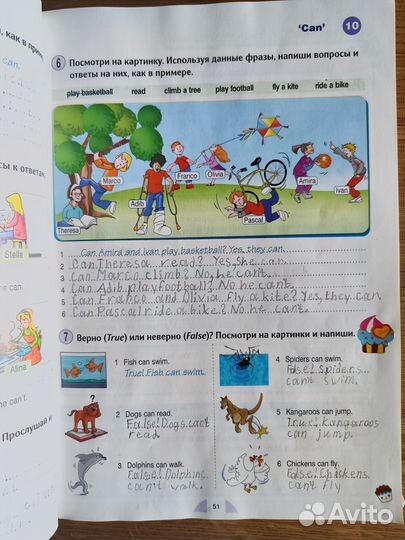 как в прим
can.
'Can'
10
6 Посмотри на картинку. Используя данные фразы, напиши вопросы и
ответы на них, как в примере.
play basketball read climb a tree play football fly a kite ride a bike
сы к ответам.
Theresa
Marco
Adib
Franco
Olivia
Pascal
Amira
Ivan
Stella
1 Can Amira and Ivan play basketball? Yes, they can.
2 Can Theresa read? Yes, she can.
3 Can Marco climb? No, he can't.
4 Can Adib play football? No, he can't.
5 Can Franco and Olivia fly a kite? Yes, they can.
6 Can Pascal ride a bike? No, he can't.
7 Верно (True) или неверно (False)? Посмотри на картинки и напиши.
Alina
he can't.
Прослушай и
1 Fish can swim.
True! Fish can swim.
2 Dogs can read.
False! Dogs can't
read
3 Dolphins can walk.
False! Dolphins
can't walk.
4 Spiders can swim.
False! Spiders
can't swim.
5 Kangaroos can jump.
True! Kangaroos
can jump.
6 Chickens can fly.
False! Chickens
can't fly
51
Avito